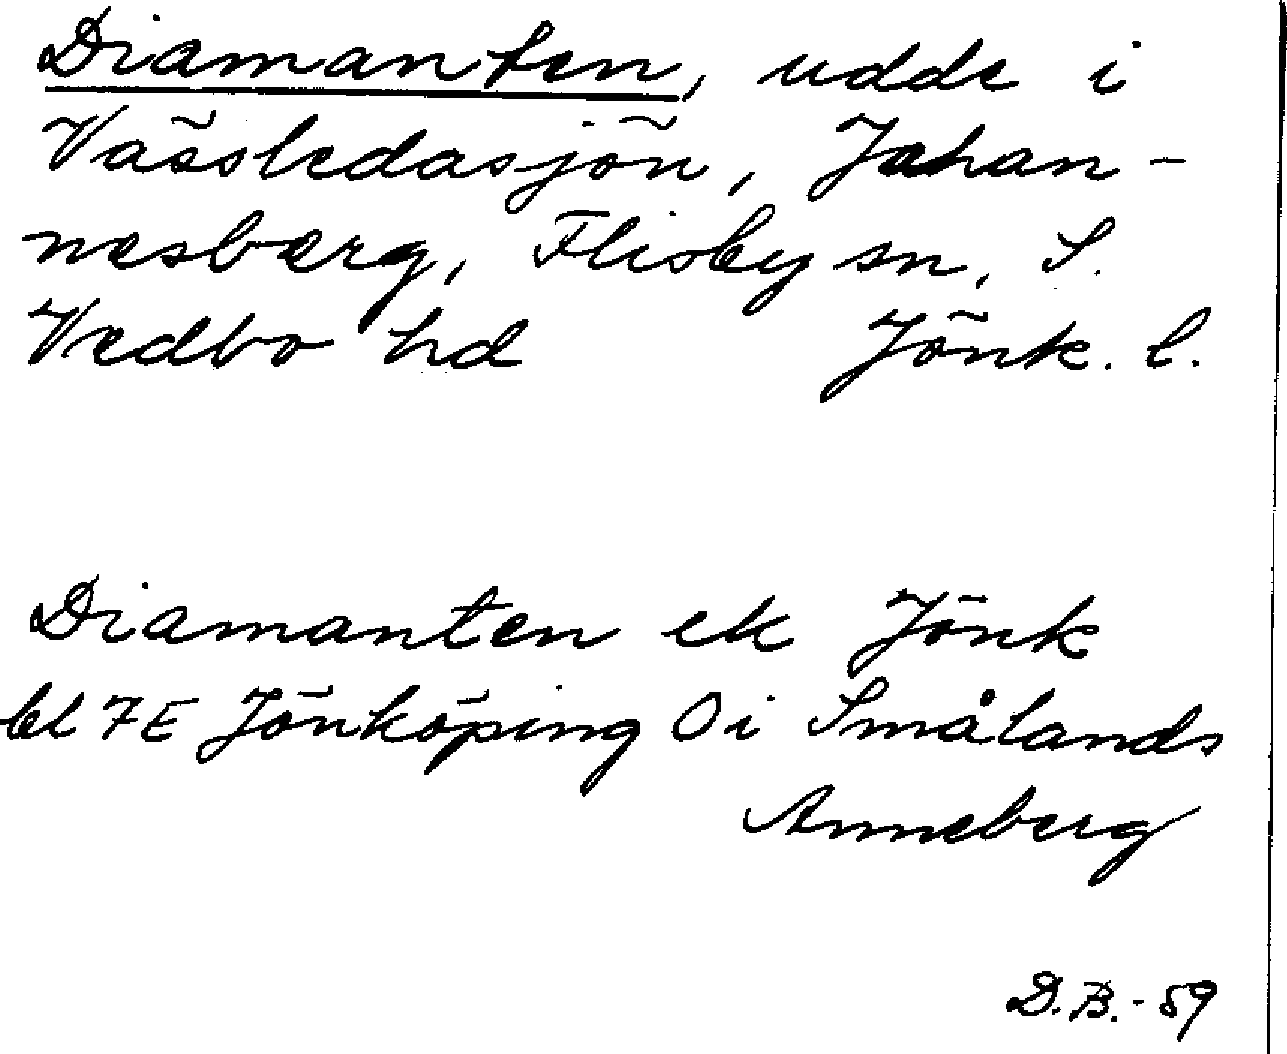 Diamanten, udde i
Vässledasjön, Johan-
nesberg, Flisby sn, S.
Vedbo hd Jönk. l.
Diamanten ek Jönk
bl 7E Jönköping O i Smålands
Anneberg
D.B.-59